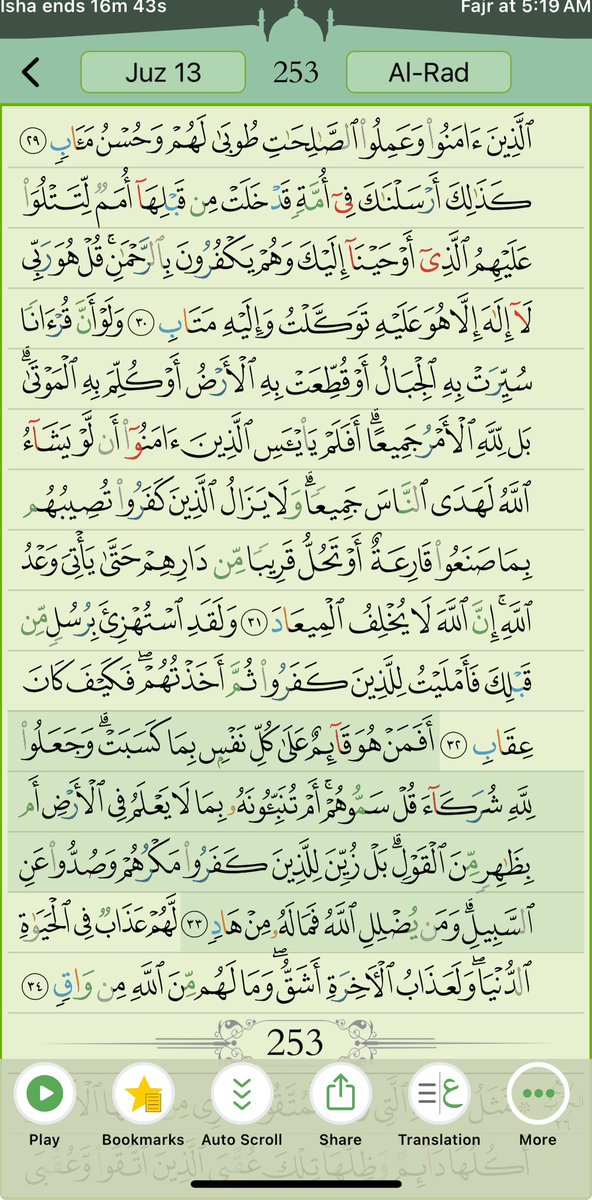 Isha ends 16m 43s
Fajr at 5:19 AM
Juz 13
253
Al-Rad
ٱلَّذِينَ ءَامَنُوا۟ وَعَمِلُوا۟ ٱلصَّـٰلِحَـٰتِ طُوبَىٰ لَهُمْ وَحُسْنُ مَـَٔابٍ ٢٩
كَذَٰلِكَ أَرْسَلْنَـٰكَ فِىٓ أُمَّةٍ قَدْ خَلَتْ مِن قَبْلِهَآ أُمَمٌ لِّتَتْلُوَا۟
عَلَيْهِمُ ٱلَّذِىٓ أَوْحَيْنَآ إِلَيْكَ وَهُمْ يَكْفُرُونَ بِٱلرَّحْمَـٰنِ ۚ قُلْ هُوَ رَبِّى
لَآ إِلَـٰهَ إِلَّا هُوَ عَلَيْهِ تَوَكَّلْتُ وَإِلَيْهِ مَتَابِ ٣٠ وَلَوْ أَنَّ قُرْءَانًا
سُيِّرَتْ بِهِ ٱلْجِبَالُ أَوْ قُطِّعَتْ بِهِ ٱلْأَرْضُ أَوْ كُلِّمَ بِهِ ٱلْمَوْتَىٰ ۗ
بَل لِّلَّهِ ٱلْأَمْرُ جَمِيعًا ۗ أَفَلَمْ يَا۟يْـَٔسِ ٱلَّذِينَ ءَامَنُوٓا۟ أَن لَّوْ يَشَآءُ
ٱللَّهُ لَهَدَى ٱلنَّاسَ جَمِيعًا ۗ وَلَا يَزَالُ ٱلَّذِينَ كَفَرُوا۟ تُصِيبُهُم
بِمَا صَنَعُوا۟ قَارِعَةٌ أَوْ تَحُلُّ قَرِيبًا مِّن دَارِهِمْ حَتَّىٰ يَأْتِىَ وَعْدُ
ٱللَّهِ ۚ إِنَّ ٱللَّهَ لَا يُخْلِفُ ٱلْمِيعَادَ ٣١ وَلَقَدِ ٱسْتُهْزِئَ بِرُسُلٍ مِّن
قَبْلِكَ فَأَمْلَيْتُ لِلَّذِينَ كَفَرُوا۟ ثُمَّ أَخَذْتُهُمْ ۖ فَكَيْفَ كَانَ
عِقَابِ ٣٢ أَفَمَنْ هُوَ قَآئِمٌ عَلَىٰ كُلِّ نَفْسٍۭ بِمَا كَسَبَتْ ۗ وَجَعَلُوا۟
لِلَّهِ شُرَكَآءَ قُلْ سَمُّوهُمْ ۚ أَمْ تُنَبِّـُٔونَهُۥ بِمَا لَا يَعْلَمُ فِى ٱلْأَرْضِ أَم
بِظَـٰهِرٍ مِّنَ ٱلْقَوْلِ ۗ بَلْ زُيِّنَ لِلَّذِينَ كَفَرُوا۟ مَكْرُهُمْ وَصُدُّوا۟ عَنِ
ٱلسَّبِيلِ ۗ وَمَن يُضْلِلِ ٱللَّهُ فَمَا لَهُۥ مِنْ هَادٍ ٣٣ لَّهُمْ عَذَابٌ فِى ٱلْحَيَوٰةِ
ٱلدُّنْيَا ۖ وَلَعَذَابُ ٱلْـَٔاخِرَةِ أَشَقُّ ۖ وَمَا لَهُم مِّنَ ٱللَّهِ مِن وَاقٍ ٣٤
253
Play
Bookmarks
Auto Scroll
Share
Translation
More
أُكُلُهَا دَآئِمٌ وَظِلُّهَا ۚ تِلْكَ عُقْبَى ٱلَّذِينَ ٱتَّقَوا۟ ۖ وَّعُقْبَى